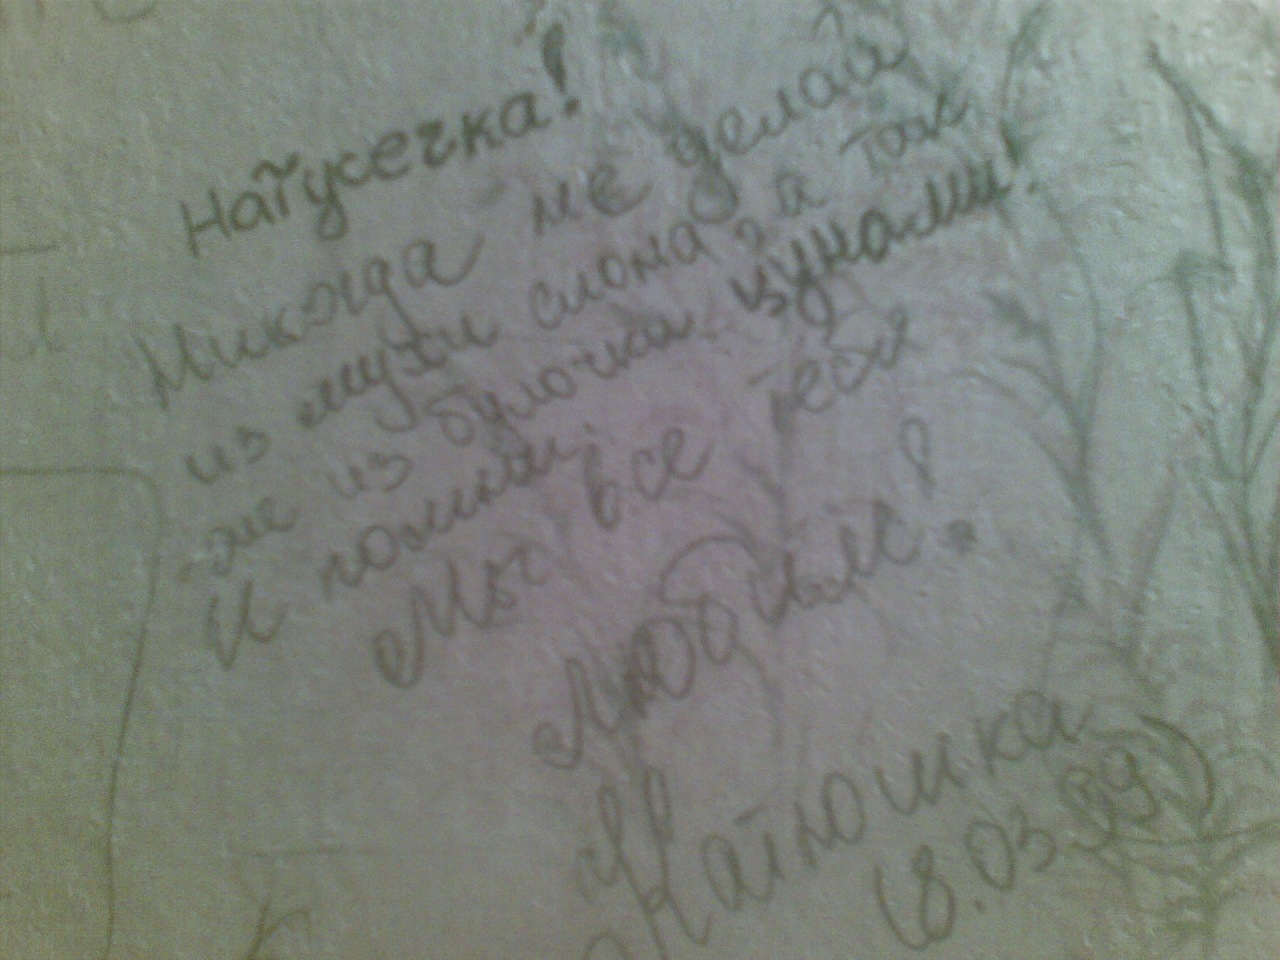 Натусечка!
Никогда не делай
из мухи слона, а так
же из булочки с изюмом!
И помни:
Мы все тебя
любим!
Катюшка
18.03.09